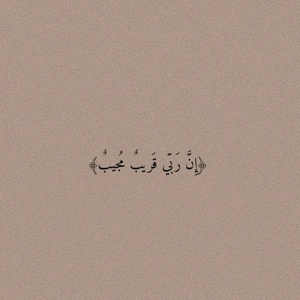 ﴿إِنَّ رَبِّي قَرِيبٌ مُجِيبٌ﴾